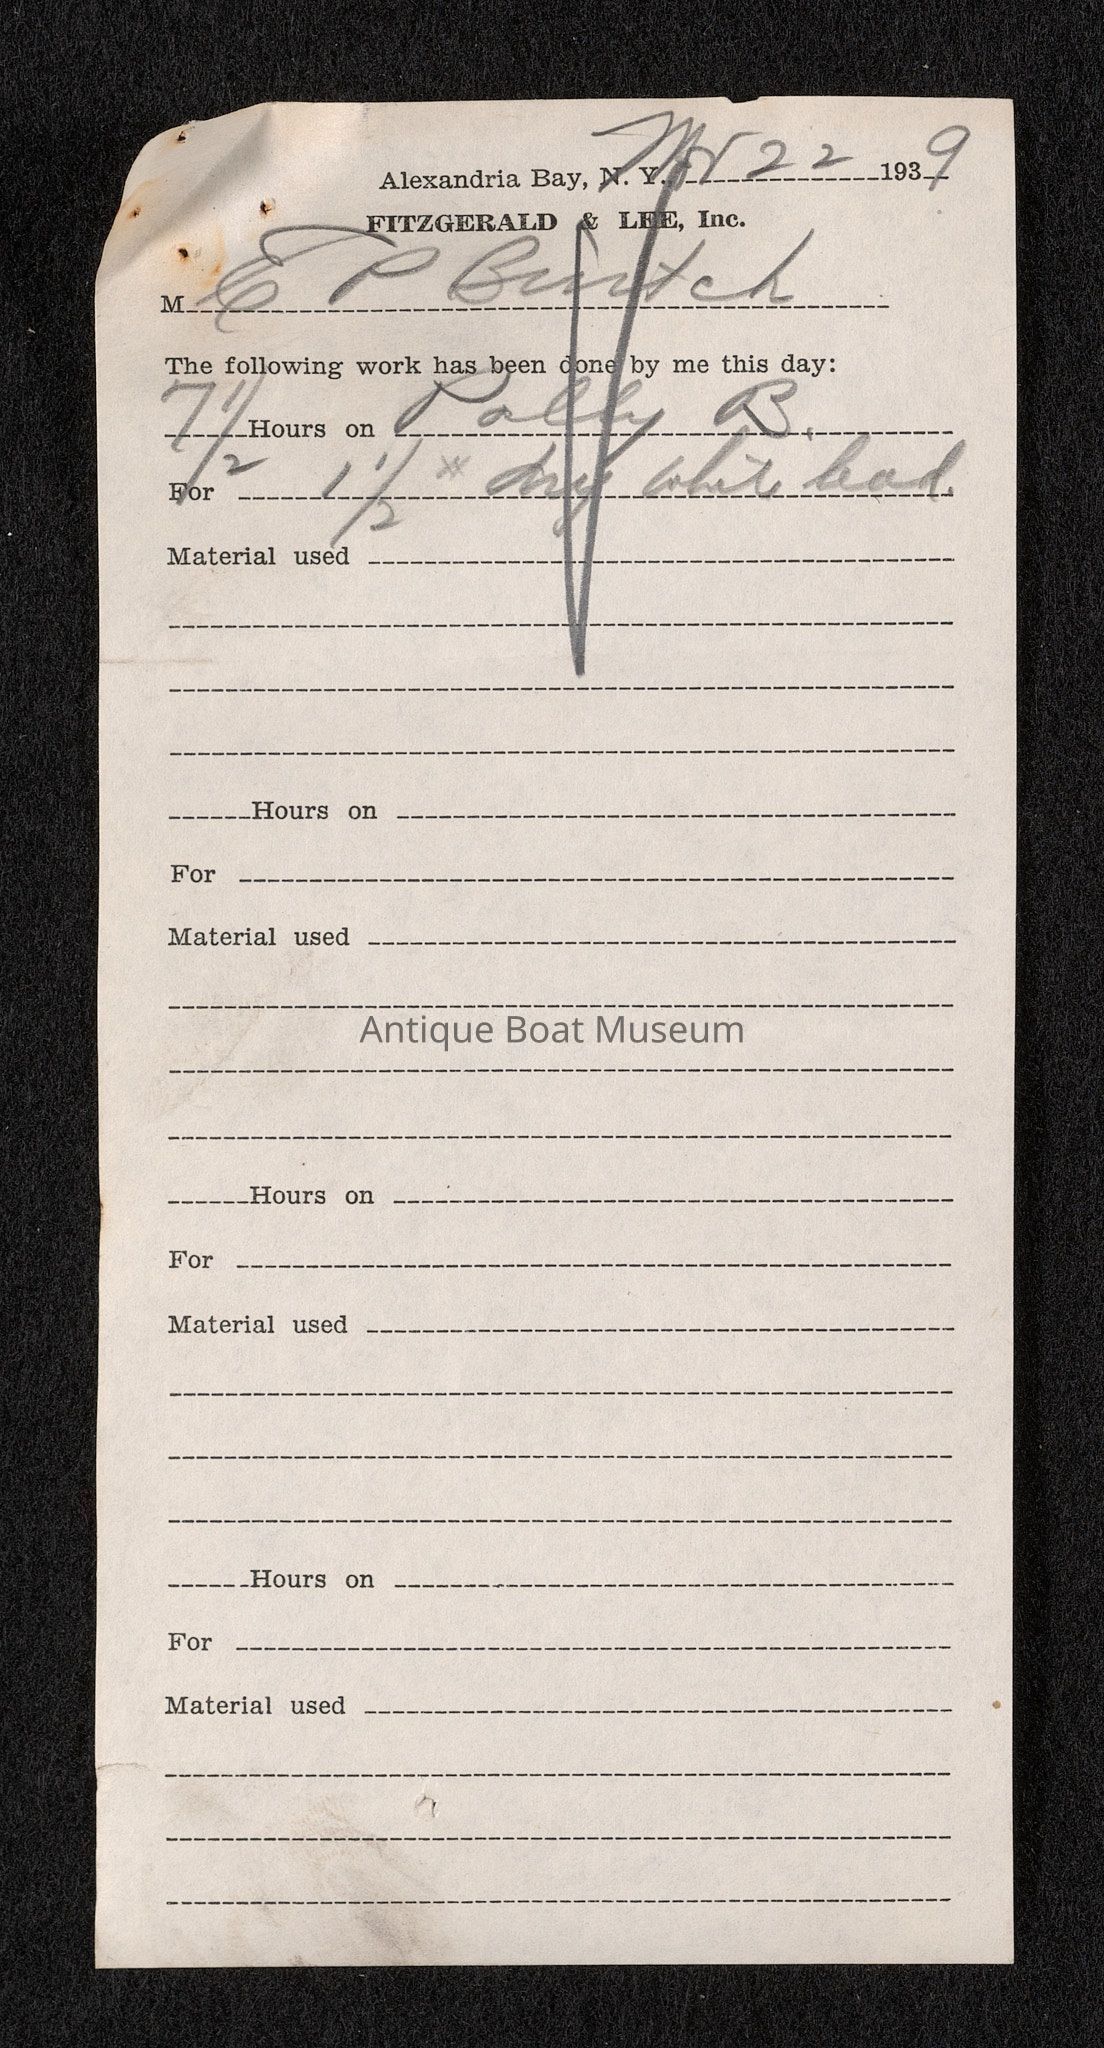 Alexandria Bay, N. Y. 22 1939
FITZGERALD & LEE, Inc.
M E P
The following work has been done by me this day:
7 1/2 Hours on Polly B.
For 1 1/2 # dry white lead
Material used
Hours on
For
Material used
Antique Boat Museum
Hours on
For
Material used
Hours on
For
Material used